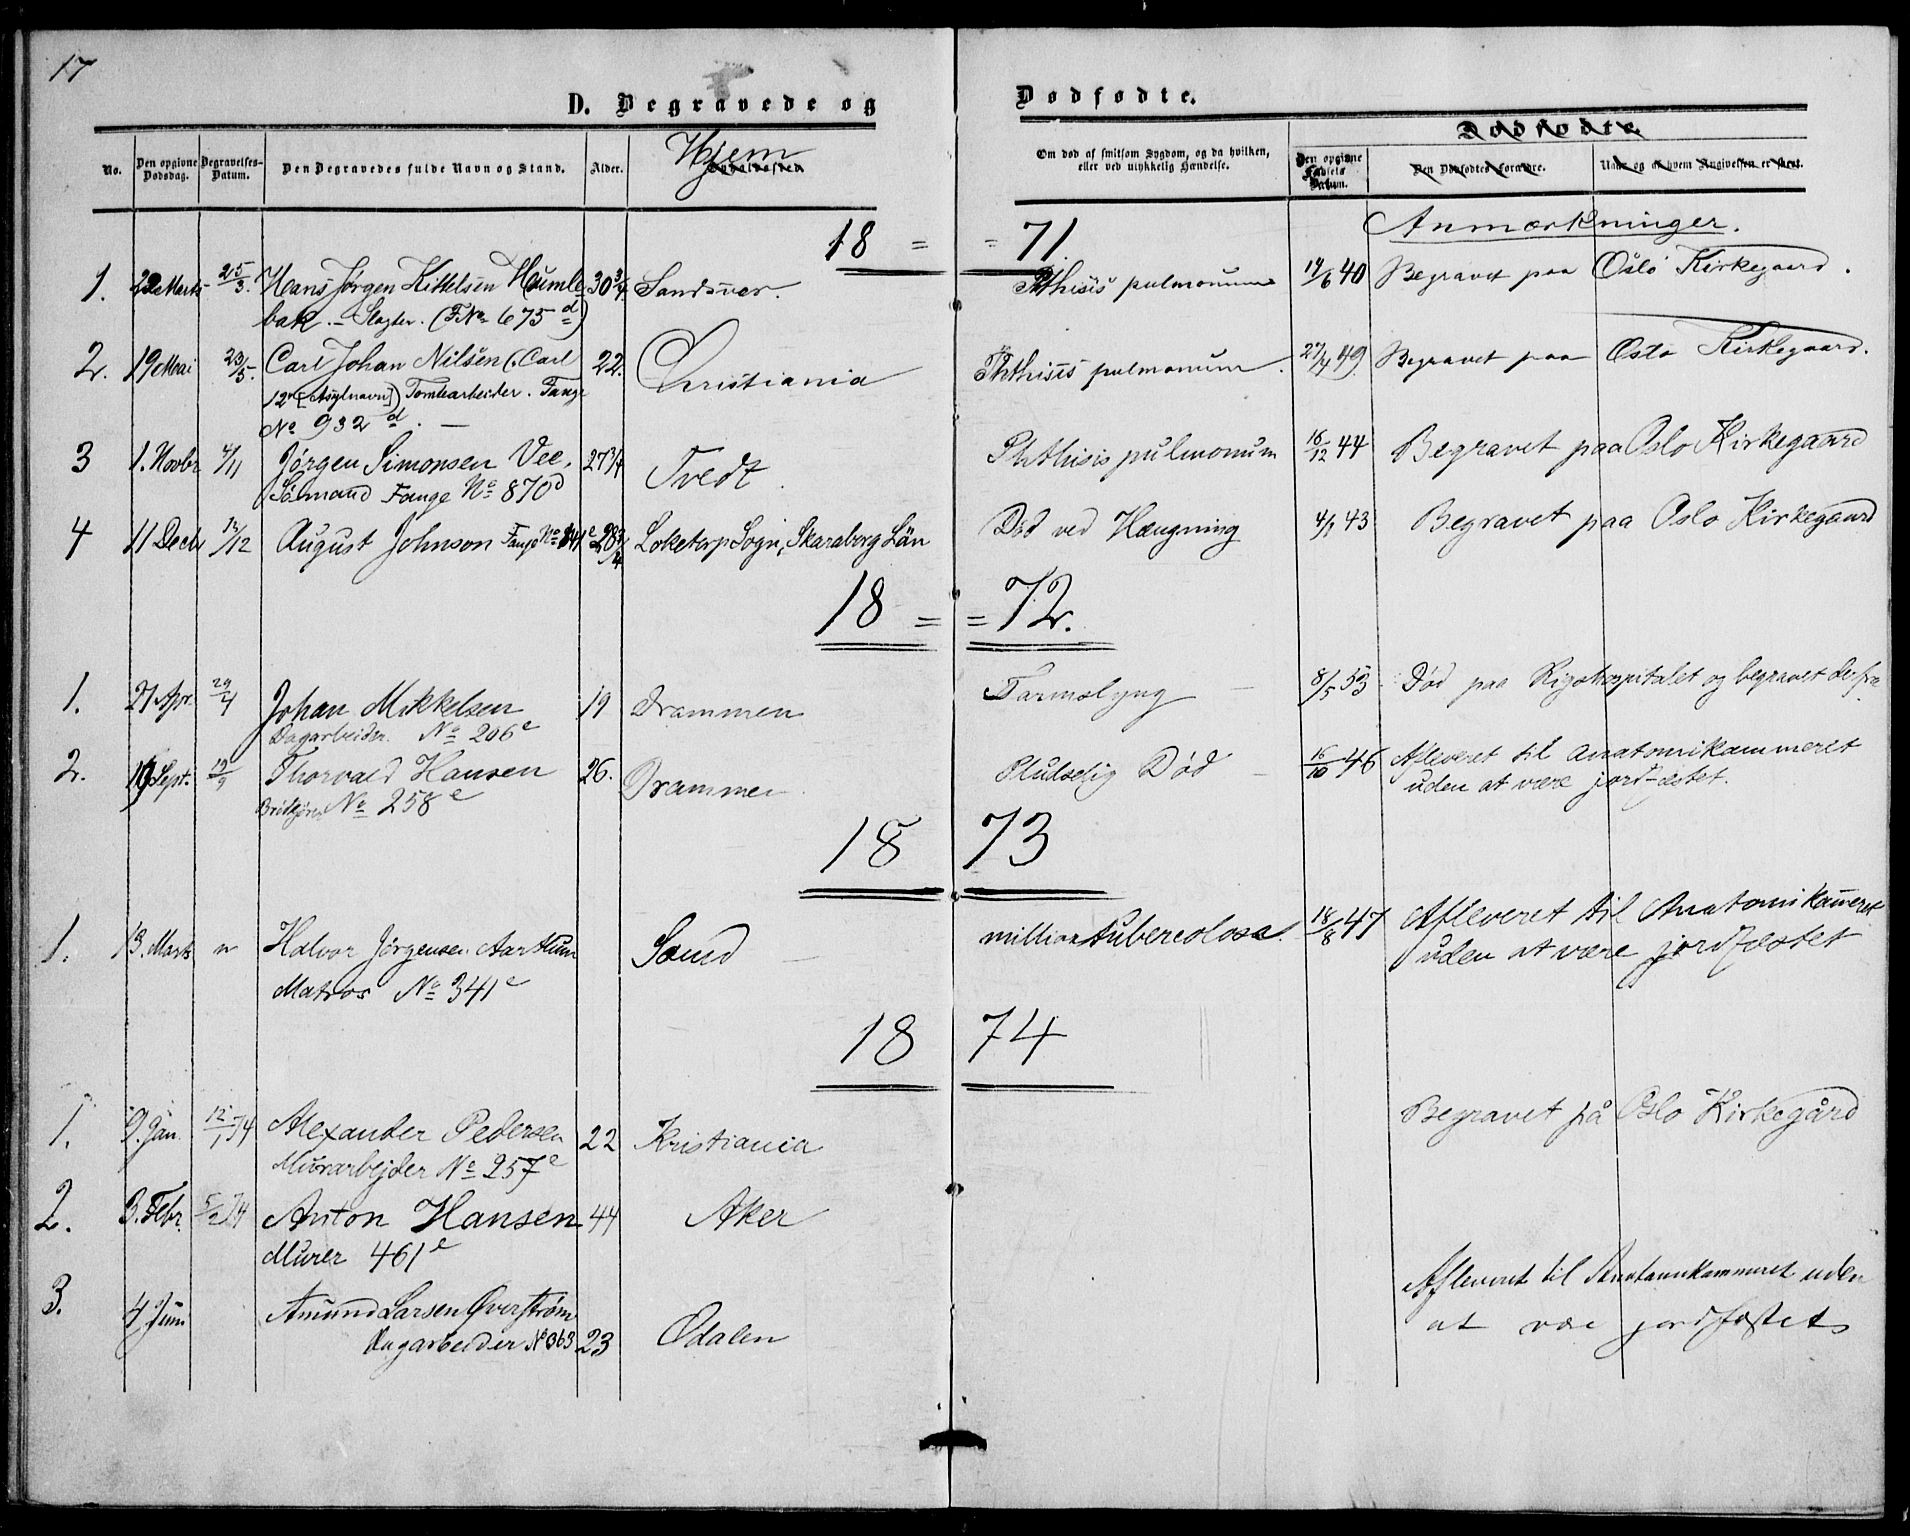 17
D. Begravede og Dødfødte.
No. Den opgivne Dødsdag. Begravelses-Datum. Den Begravedes fulde Navn og Stand. Alder. Hjem Om død af smitsom Sygdom, og da hvilken, eller ved ulykkelig Hændelse. Den opgivne Fødsels Datum. Dødfødte. Den Dødfødtes Forældre. Naar og af hvem Angivelsen er skeet.
18 = = 71. Anmærkninger.
1. 22 Marts 25/3. Hans Jørgen Kittelsen Humle 30 3/4 Sandsvær. Phthisis pulmonum 14/6 40 Begravet paa Oslo Kirkegaard.
bak. – Slagter. (F No 675 d)
2. 19 Mai 23/5. Carl Johan Nilsen (Carl 22. Christiania Phthisis pulmonum. 27/4 49 Begravet paa Oslo Kirkegaard.
12te [Asylnavn]) Tomtearbeider. Fange
No 932 d. –
3 1. Novbr 4/11 Jørgen Simonsen Vee, 27 3/4 Tvedt. Phthisis pulmonum 16/12 44 Begravet paa Oslo Kirkegaard
Sømand Fange No 870 d
4 11 Decbr 13/12 August Johnson Fange No 841 e 28 3/4 Loketorp Sogn, Skaraborg Län Død ved Hængning 4/1 43 Begravet paa Oslo Kirkegaard
18 = = 72.
1. 27 Apr. 29/4 Johan Mikkelsen 19 Drammen Tarmslyng – 8/5 53. Død paa Rigshospitalet og begravet derfra
Dagarbeider. No 206 e
2. 17 Sept. 19/9 Thorvald Hansen 26. Drammen. Pludselig Død – 16/10 46 Afleveret til Anatomikammeret
No 258 e uden at være jordfæstet.
18 73
1. 13. Marts " Halvor Jørgensen Aarthun Sand – tuberculosa. 18/8 47 Afleveret til Anatomikameret
Matros No 341 e uden at være jordfæstet
18 74
1. 9. Jan. 12/1 74 Alexander Pedersen 22 Kristiania Begravet på Oslo Kirkegård
Murarbejder No 257 e
2. 3. Febr. 5/2 74 Anton Hansen 44 Aker
Murer 461 e
3. 4 Juni Amund Larsen Øverstrøm Afleveret til Anatomikammeret uden
Dagarbeider No 363 23 Odalen at være jordfæstet